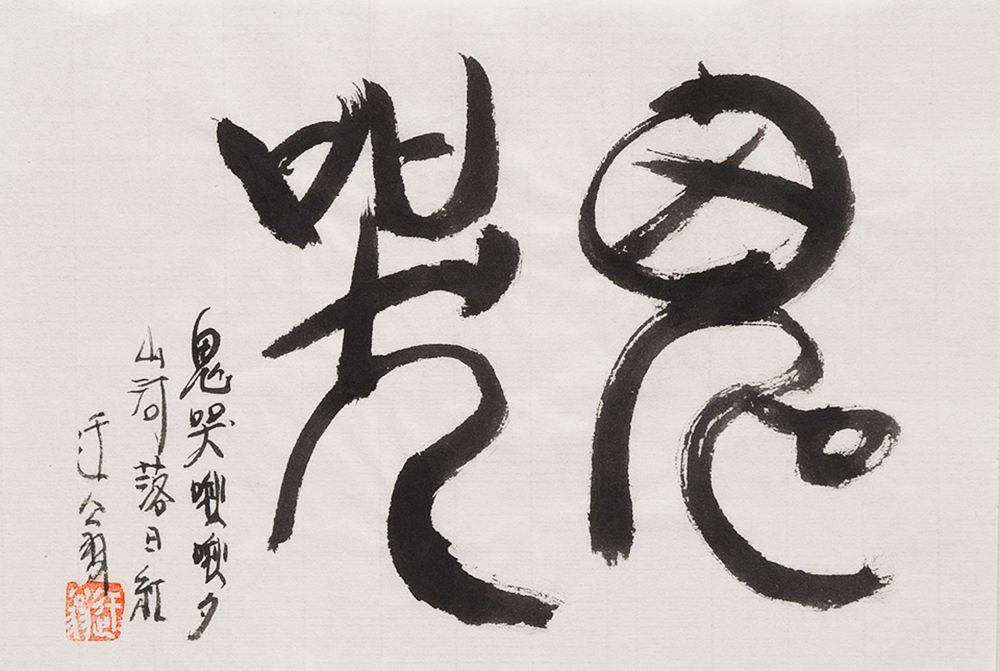 鬼哭
鬼哭啾啾夕
山河落日紅
迂公翁